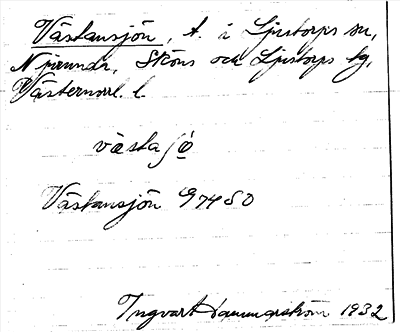 Västansjön, t. i Ljustorps sn,
Njurunda, Sköns och Ljustorps tg,
Västernorrl. l.
västaʃö
Västansjön 97480
Ingvart Hammarström 1932